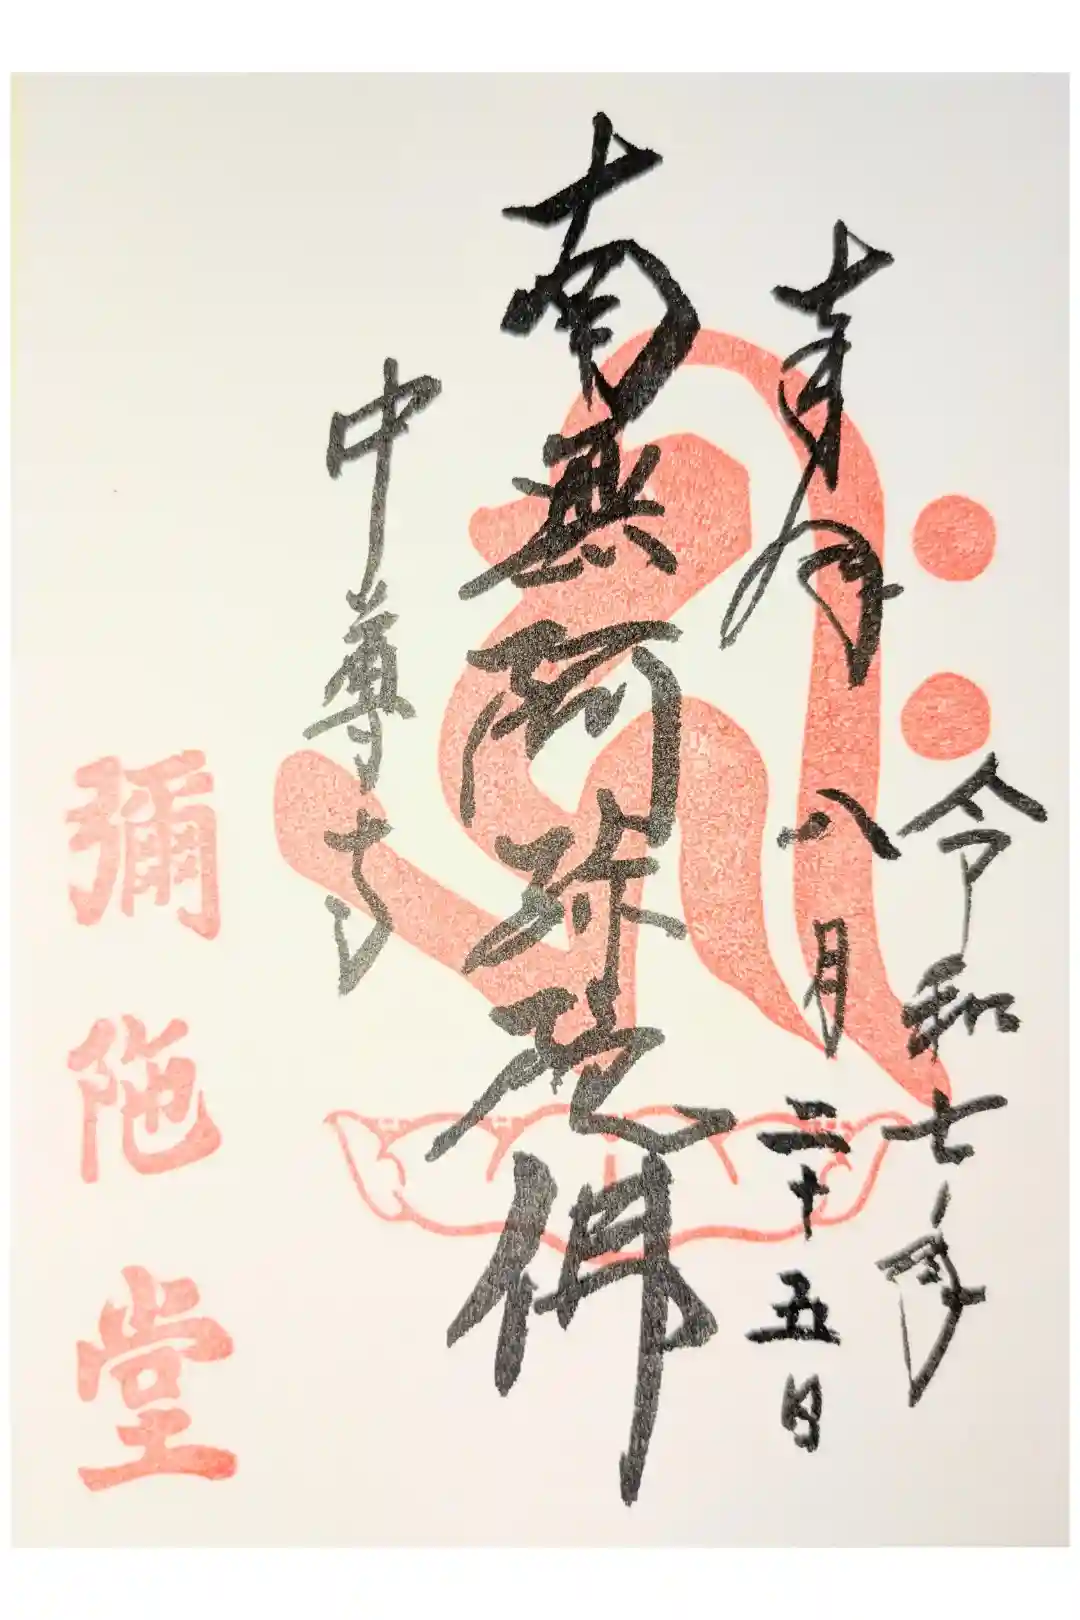 令和七年
八月二十五日
奉拝
南無阿弥陀佛
中尊寺
彌陀堂